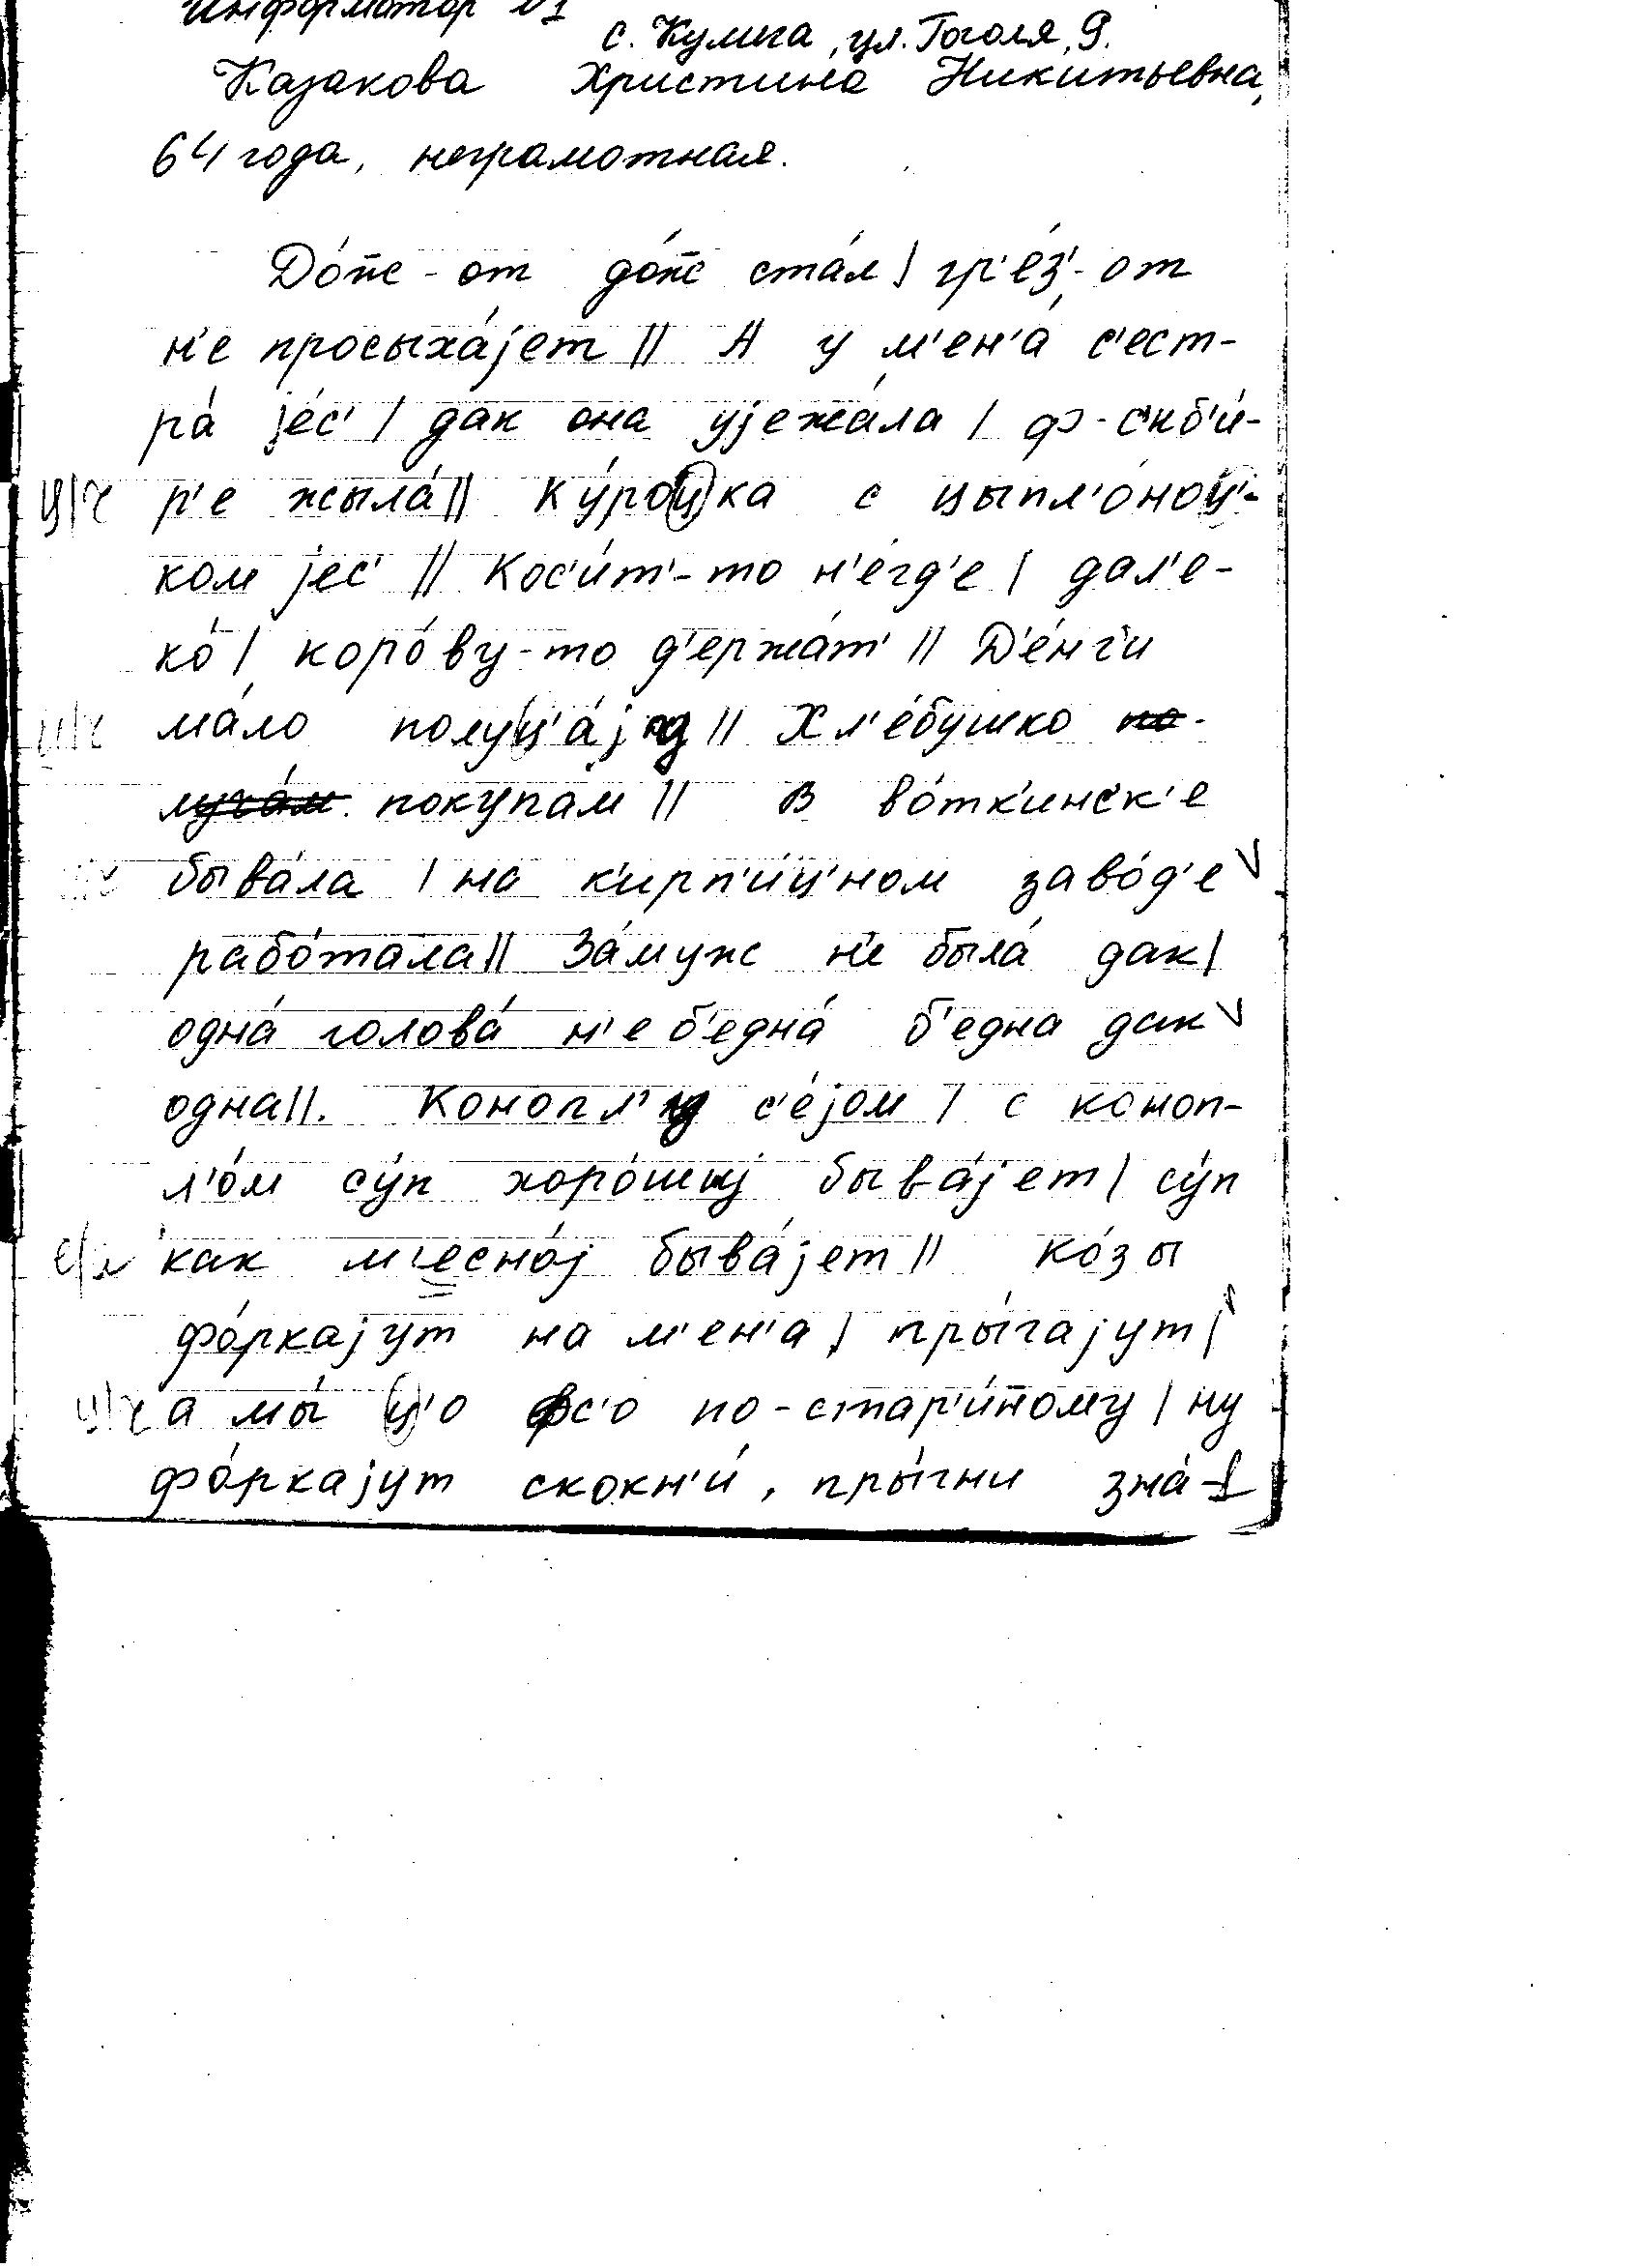 Информатор №1
с. Кулига, ул. Гоголя, 9.
Казакова Христина Никитьевна,
64 года, неграмотная.
До́жж-от до́жж ста́л | гр'е́з'-от
н'е просыха́јет || А у м'ен'а́ с'ест-
ра́ је́с' | дак она ујежа́ла | ф-с'иб'и́-
ц/ч р'е жыла́ || Ку́роцка с цыпл'о́ноц'-
ком јес' || Кос'и́т'-то н'е́гд'е | дал'е-
ко́ | коро́ву-то д'ержа́т' || Д'е́нг'и
ц/ч ма́ло полуц'а́ју || Хл'е́бушко по-
луча́м покупа́м || в во́тк'инск'е
быва́ла | на к'ирп'и́ц'ном заво́д'е V
рабо́тала || За́муж н'е была́ дак |
одна́ голова́ н'е б'една́ б'една дак V
одна ||. Конопл'у с'е́јом | с коноп-
л'о́м су́п хоро́шыј быва́јет | су́п
е/а как м'есно́ј быва́јет || ко́зы
фо́ркајут на м'ен'а | пры́гајут |
ц/ч а мы́ ц'о фс'о по-стар'и́ному | ну
фо́ркајут скокн'и́, пры́гни зна́-